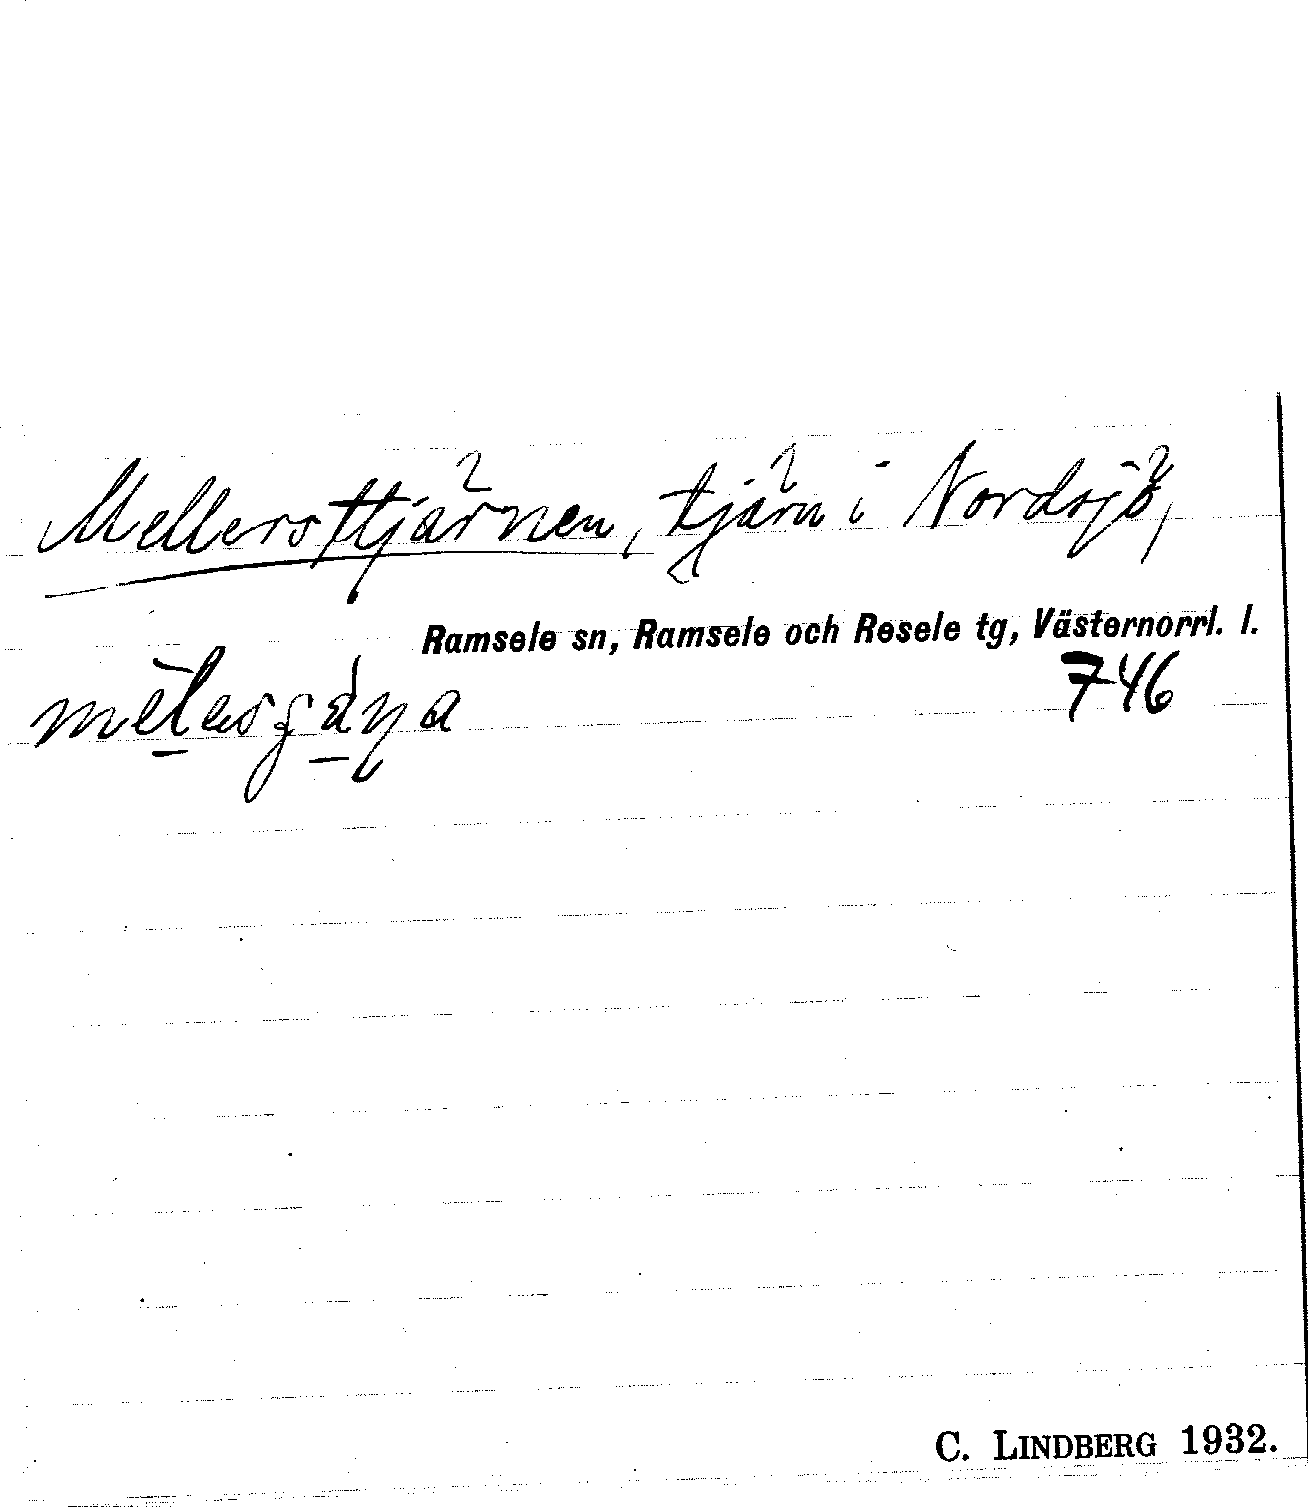 Mellersttjärnen, tjärn i Nordsjö,
Ramsele sn, Ramsele och Resele tg, Västernorrl. l.
746
C. LINDBERG 1932.